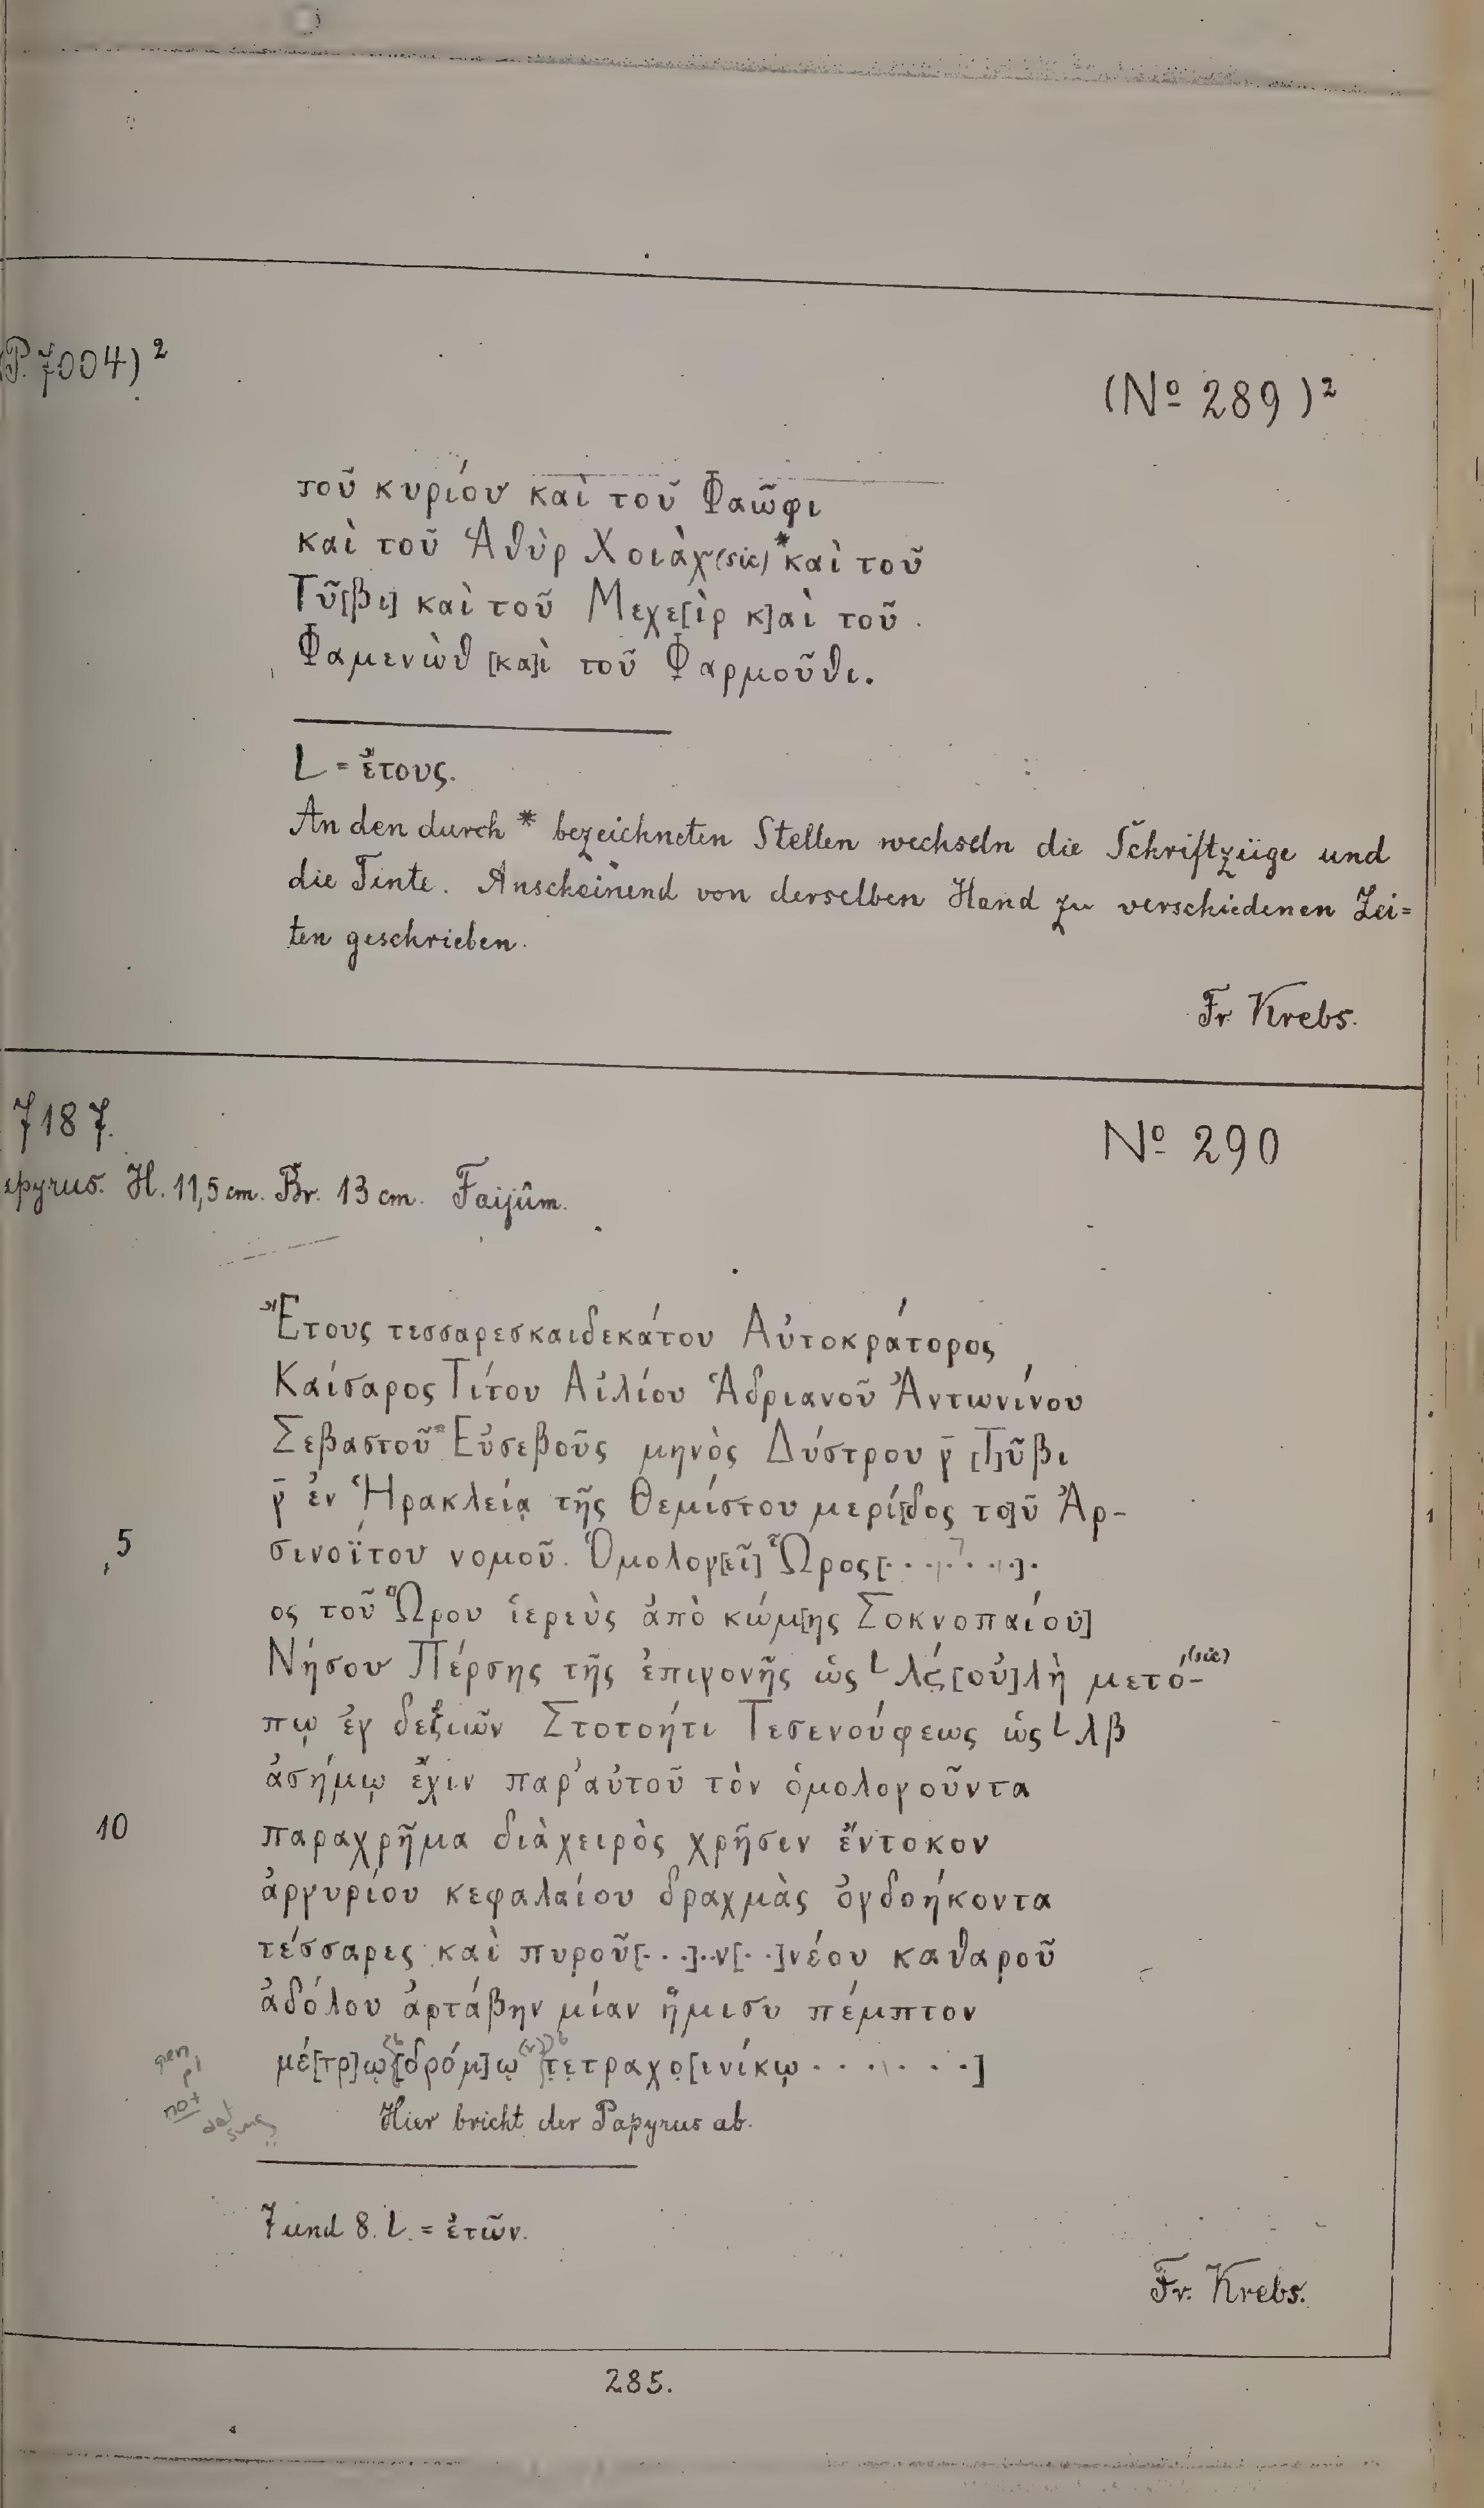 P. 7004)²
(Nº 289)²
τοῦ κυρίου καὶ τοῦ Φαῶφι
καὶ τοῦ Ἁθὺρ Χοιὰχ (sic) * καὶ τοῦ
Τῦ[βι] καὶ τοῦ Μεχε[ὶρ κ]αὶ τοῦ
Φαμενὼθ [κα]ὶ τοῦ Φαρμοῦθι.
L = ἔτους.
An den durch * bezeichneten Stellen wechseln die Schriftzüge und
die Tinte. Anscheinend von derselben Hand zu verschiedenen Zei=
ten geschrieben.
Fr. Krebs.
7187.
Nº 290
apyrus. H. 11,5 cm. Br. 13 cm. Faijûm.
Ἔτους τεσσαρεσκαιδεκάτου Αὐτοκράτορος
Καίσαρος Τίτου Αἰλίου Ἁδριανοῦ Ἀντωνίνου
Σεβαστοῦ Εὐσεβοῦς μηνὸς Δύστρου γ̄ [Τ]ῦβι
γ̄ ἐν Ἡρακλείᾳ τῆς Θεμίστου μερί[δος το]ῦ Ἀρ-
5 σινοΐτου νομοῦ. Ὁμολογ[εῖ] Ὧρος [. . . . . . .].
ος τοῦ Ὥρου ἱερεὺς ἀπὸ κώμ[ης Σοκνοπαίου]
Νήσου Πέρσης τῆς ἐπιγονῆς ὡς L λϛ [οὐ]λὴ μετό- (sic)
πῳ ἐγ δεξιῶν Στοτοήτι Τεσενούφεως ὡς L λβ
ἀσήμῳ ἔχιν παρ' αὐτοῦ τὸν ὁμολογοῦντα
10 παραχρῆμα διὰ χειρὸς χρῆσιν ἔντοκον
ἀργυρίου κεφαλαίου δραχμὰς ὀγδοήκοντα
τέσσαρες καὶ πυροῦ [. . .]..ν[. .] νέου καθαροῦ
ἀδόλου ἀρτάβην μίαν ἥμισυ πέμπτον
μέ[τρ]ῳ [δρόμ]ῳ τετραχο[ινίκῳ . . . . . . .]
Hier bricht der Papyrus ab.
7 und 8. L. = ἐτῶν.
Fr. Krebs.
285.